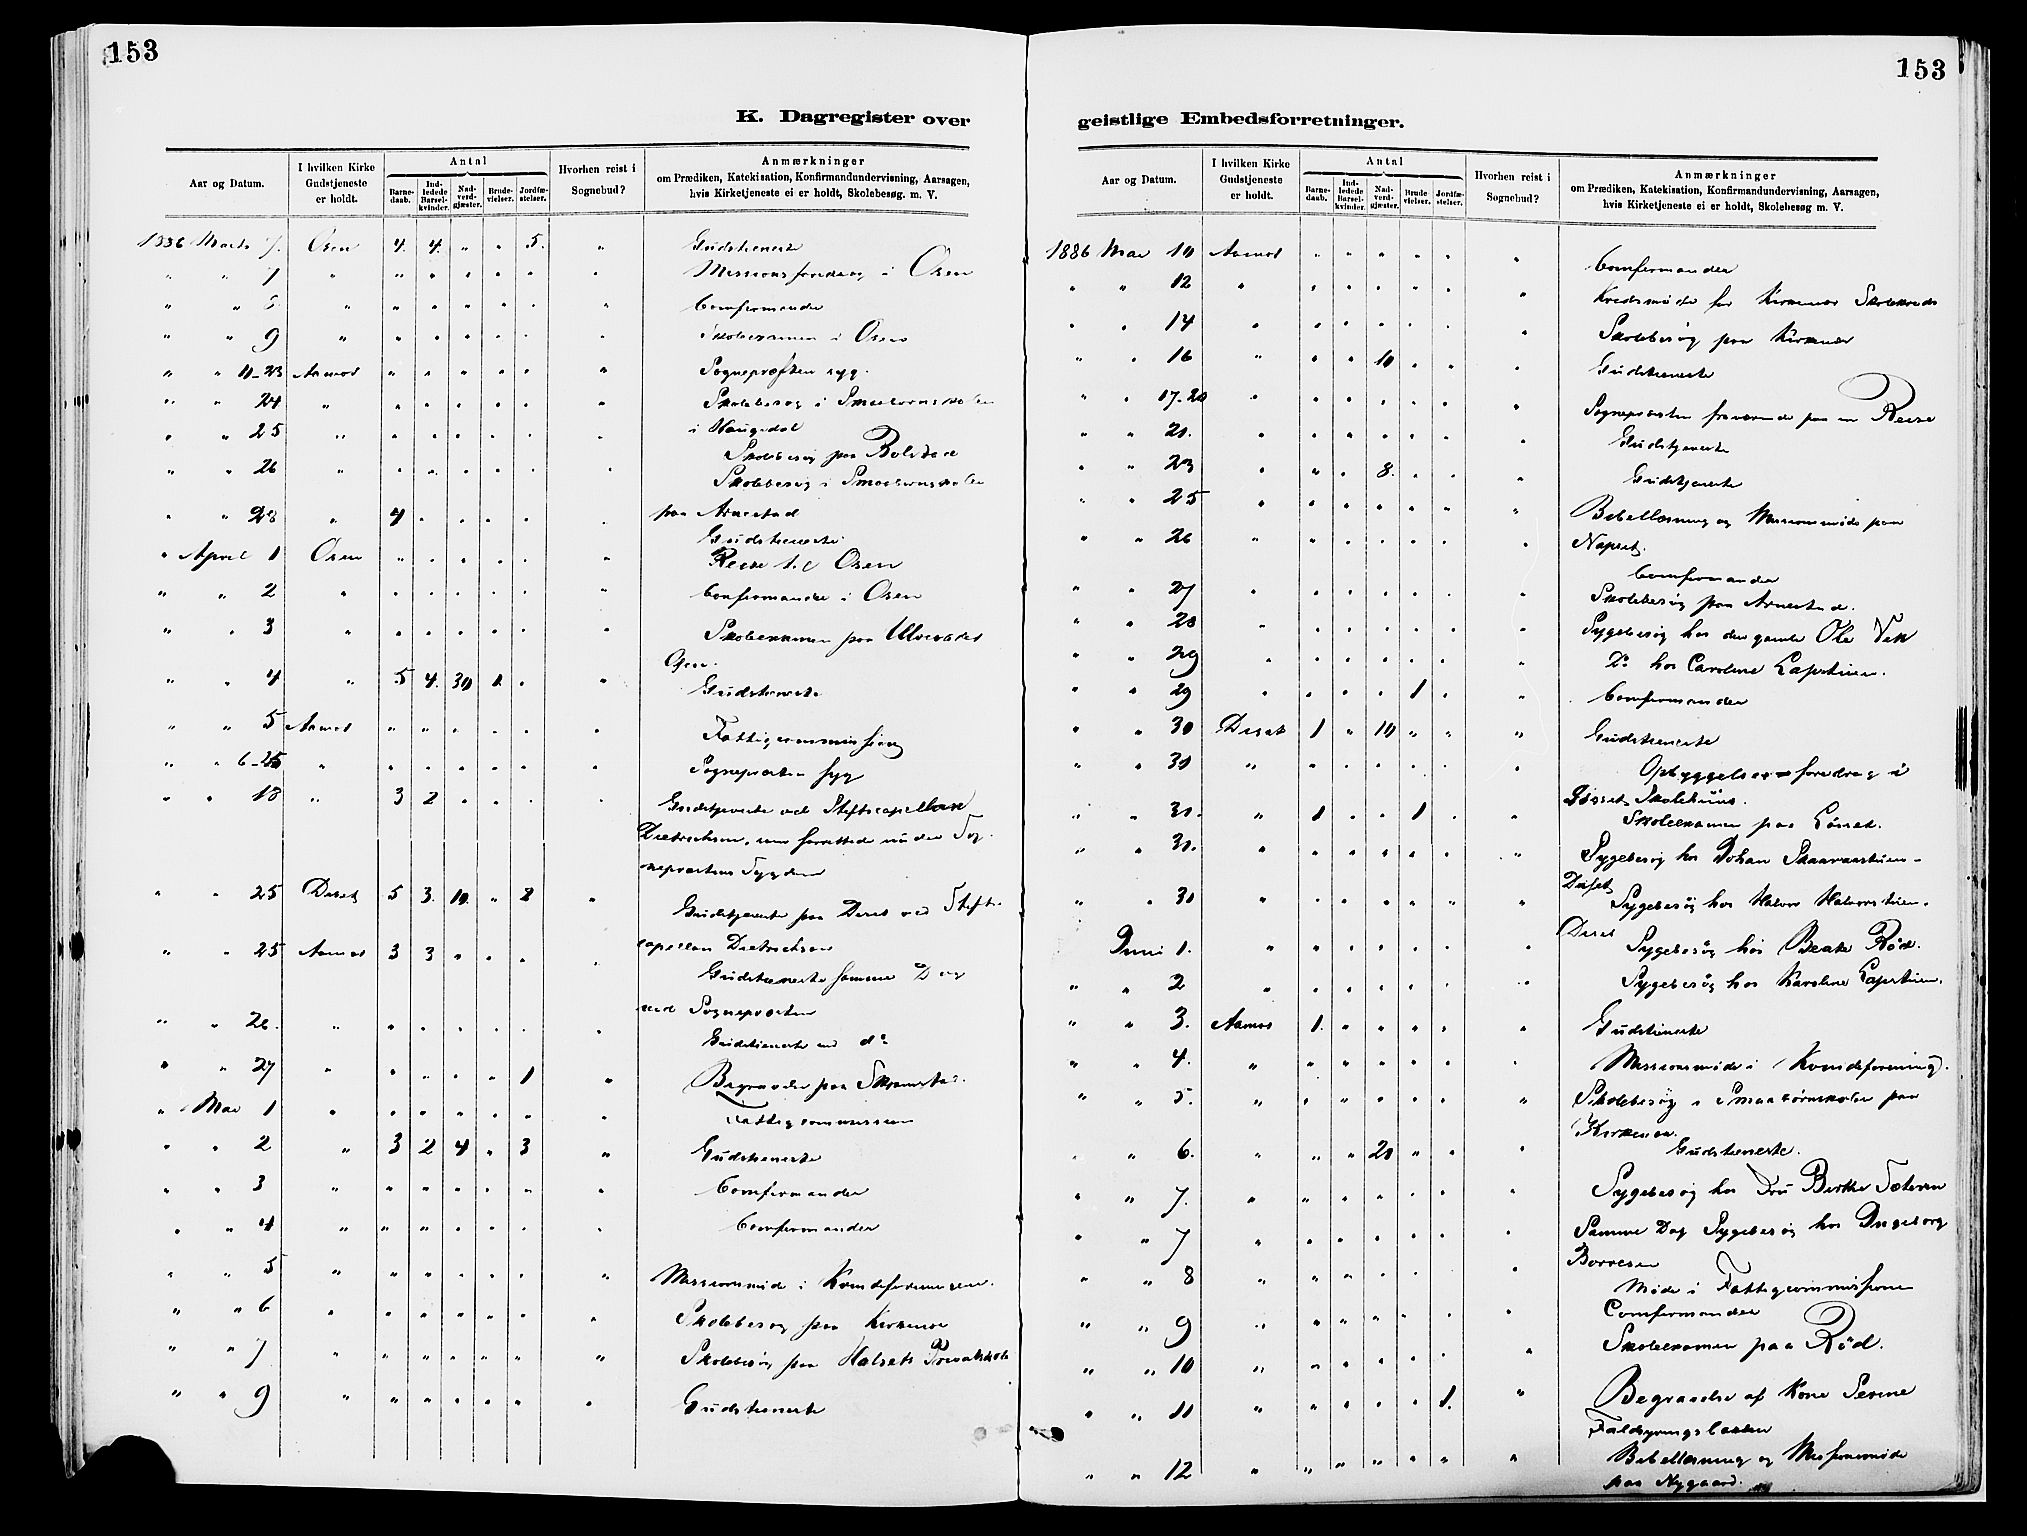 153
K. Dagregister over
Aar og Datum.
I hvilken Kirke Gudstjeneste er holdt.
Antal
Barnedaab.
Indledede Barselkvinder.
Nadverdgjæster.
Brudevielser.
Jordfæstelser.
Hvorhen reist i Sognebud?
Anmærkninger
om Prædiken, Katekisation, Konfirmandundervisning, Aarsagen,
hvis Kirketjeneste ei er holdt, Skolebesøg. m. V.
1886 Marts 7. Osen 4. 4. " " 5. " Gudstieneste
" " 7 " " " " " " " Missionsforedrag i Osen
" " 8 " " " " " " " Comfirmander
" " 9 " " " " " " " Skoleexamen i Osen
" " 11-23 Aamot " " " " " " Sognepræsten syg.
" " 24 " " " " " " " Skolebesøg i Smaabørnsskolen
" " 25 " " " " " " " i Haugedal
Skolebesøg paa
" " 26 " " " " " " " Skolebesøg i Smaabørnsskolen
" " 28 " 4 " " " " " paa Arnestad
Gudstieneste
" April 1 Osen " " " " " " Reise til Osen
" " 2 " " " " " " " Comfirmander i Osen
" " 3 " " " " " " " Skoleexamen paa Ulvevadet
Osen.
" " 4 " 5 4. 30 1. " " Gudstieneste
" " 5 Aamot " " " " " " Fattigcommission
" " 6-25 " " " " " " " Sognepræsten syg
" " 18 " 3 2 " " " " Gudstjeneste ved Stiftscapellan
Dietrichson, som forrettede under Sog
nepræstens Sygdom
" " 25 Deset 5 3. 10. " 2 " Gudstjeneste paa Deset ved Stifts-
capellan Dietrichson
" " 25 Aamot 3 3 " " " " Gudstieneste samme Dag
ved Sognepræsten
" " 26. " " " " " " " Gudstieneste ved do
" " 27 " " " " " 1 " Begravelse paa Skramstad.
" Mai 1 " " " " " " " Fattigcommission
" " 2 " 3 2 4 " 3 " Gudstieneste
" " 3 " " " " " " " Comfirmander
" " 4 " " " " " " " Comfirmander
" " 5 " " " " " " " Missionsmøde i Kvindeforeningen.
" " 6 " " " " " " " Skolebesøg paa Kirkenær
" " 7 " " " " " " " Skolebesøg paa Halsets Privatskole
" " 9 " " " " " " " Gudstieneste
153
geistlige Embedsforretninger.
Aar og Datum.
I hvilken Kirke Gudstjeneste er holdt.
Antal
Barnedaab.
Indledede Barselkvinder.
Nadverdgjæster.
Brudevielser.
Jordfæstelser.
Hvorhen reist i Sognebud?
Anmærkninger
om Prædiken, Katekisation, Konfirmandundervisning, Aarsagen,
hvis Kirketjeneste ei er holdt, Skolebesøg m. V.
1886 Mai 10 Aamot " " " " " " Comfirmander
" " 12 " " " " " " " Kredsmøde for Kirkenær Skolekreds
" " 14 " " " " " " " Skolebesøg paa Kirkenær
" " 16 " " " 10 " " " Gudstieneste
" " 17-20 " " " " " " " Sognepræsten fraværende paa en Reise
" " 21. " " " " " " " Gudstjeneste
" " 23 " " " 8. " " " Gudstjeneste
" " 25 " " " " " " " Bibellæsning og Missionsmøde paa
" " 26 " " " " " " "
Comfirmander
" " 27 " " " " " " " Skolebesøg paa Arnestad.
" " 28 " " " " " " " Sygebesøg hos den gamle Ole
" " 29 " " " " " " " Do hos Caroline
" " 29 " " " " 1 " " Comfirmander
" " 30 Deset 1 " 10 " " " Gudstieneste
" " 30 " " " " " " " Opbyggelsesforedrag i
Løsset Skolehuus.
" " 31. " 1 " " 1 " " Skoleexamen paa Løsset.
" " 31. " " " " " " " Sygebesøg hos Johan
Deset
" " 30 " " " " " " " Sygebesøg hos Halvor
Deset
Juni 1. " " " " " " " Sygebesøg hos Beate Rød.
" " 2 " " " " " " " Sygebesøg hos Karoline
" " 3. Aamot 1. " " " " " Gudstieneste
" " 4. " " " " " " " Missionsmøde i Kvindeforening.
" " 5. " " " " " " " Skolebesøg i Smaabørnskolen paa
Kirkenær.
" " 6. " " " 20 " " " Gudstieneste.
" " 7. " " " " " " " Sygebesøg hos Fru Birthe Sæteren
" " 7 " " " " " " " Samme Dag Sygebesøg hos Ingeborg
Borresen
" " 8 " " " " " " " Møde i Fattigcommissionen
" " 9 " " " " " " " Comfirmander
" " 10 " " " " " " " Skoleexamen paa Rød.
" " 11 " " " " " 1. " Begravelse af Kone Serine
" " 12 " " " " " " " Bibellæsning og Missionsmøde
paa Nygaard.